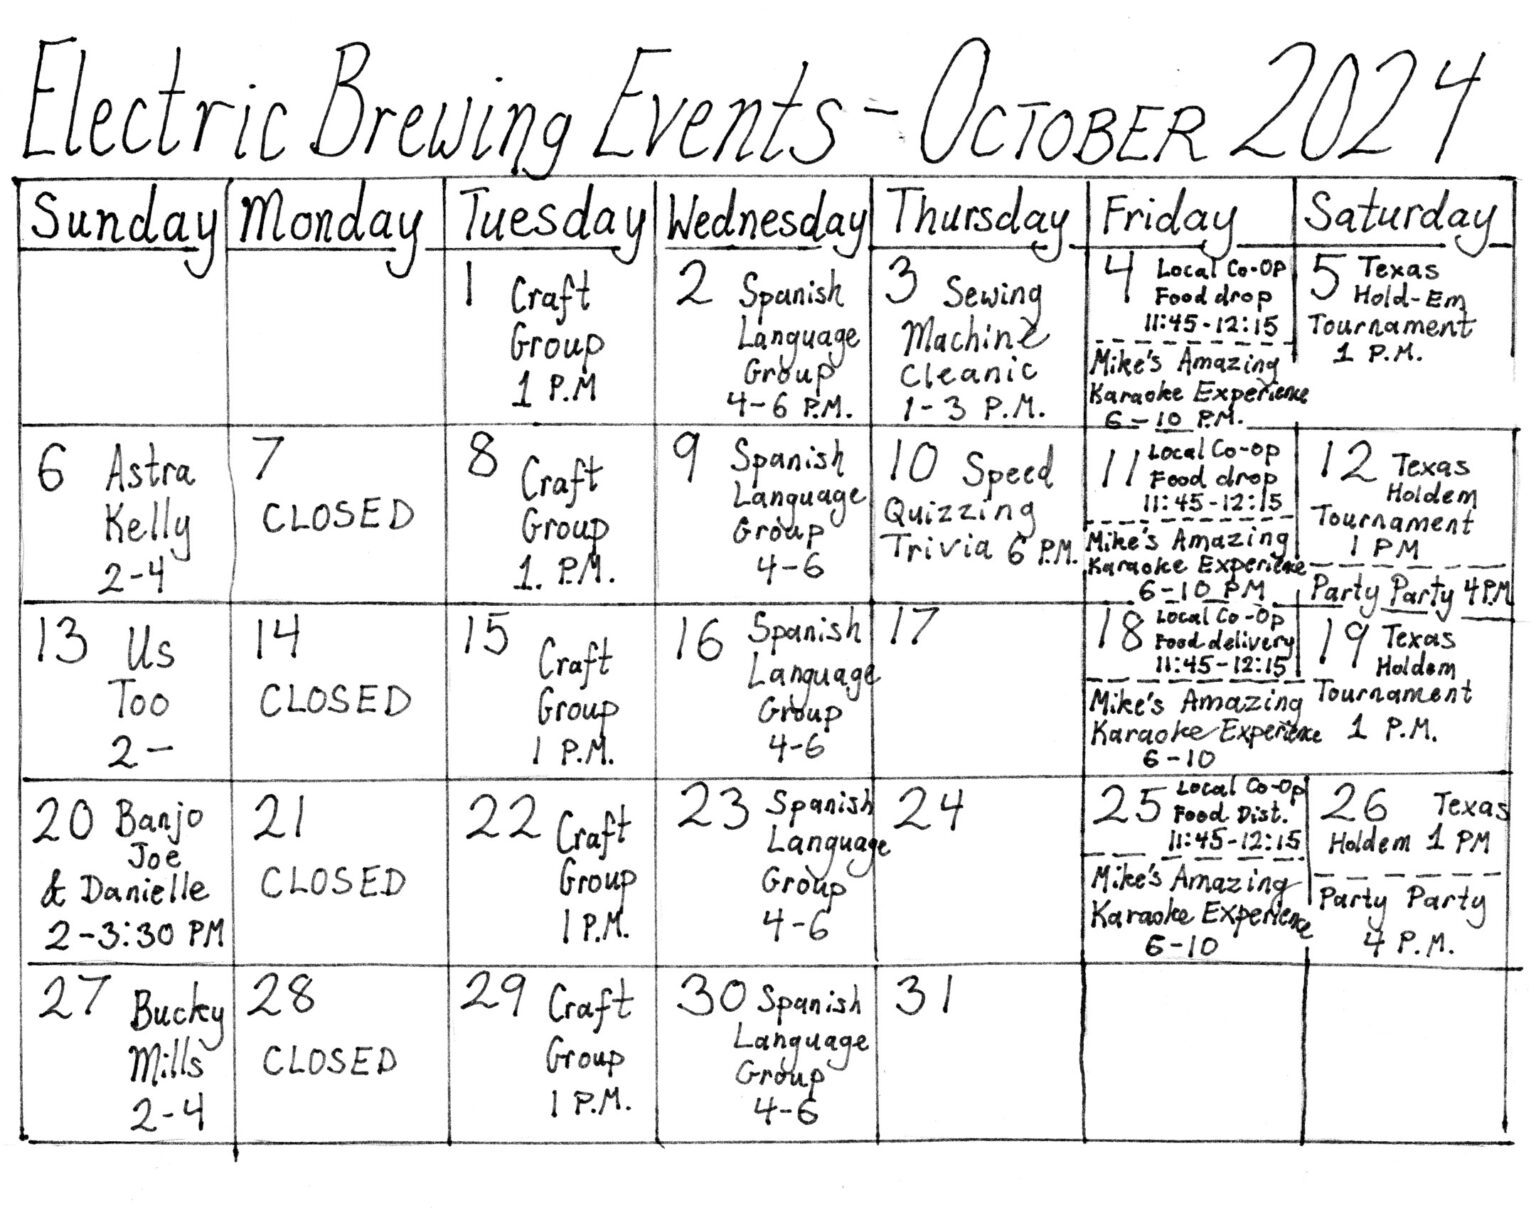 Electric Brewing Events - OCTOBER 2024
Sunday Monday Tuesday Wednesday Thursday Friday Saturday
1 Craft
Group
1 P.M
2 Spanish
Language
Group
4-6 P.M.
3 Sewing
Machine
Cleanic
1-3 P.M.
4 Local Co-OP
Food drop
11:45-12:15
Mike's Amazing
Karaoke Experience
6-10 P.M.
5 Texas
Hold-Em
Tournament
1 P.M.
6 Astra
Kelly
2-4
7
CLOSED
8 Craft
Group
1. P.M.
9 Spanish
Language
Group
4-6
10 Speed
Quizzing
Trivia 6 P.M.
11 Local Co-op
Food drop
11:45-12:15
Mike's Amazing
Karaoke Experience
6-10 PM
12 Texas
Holdem
Tournament
1 PM
Party Party 4PM
13 Us
Too
2-
14
CLOSED
15 Craft
Group
1 P.M.
16 Spanish
Language
Group
4-6
17
18 Local Co-Op
Food delivery
11:45-12:15
Mike's Amazing
Karaoke Experience
6-10
19 Texas
Holdem
Tournament
1 P.M.
20 Banjo
Joe
& Danielle
2-3:30 PM
21
CLOSED
22 Craft
Group
1 P.M.
23 Spanish
Language
Group
4-6
24
25 Local Co-Op
Food Dist.
11:45-12:15
Mike's Amazing
Karaoke Experience
6-10
26 Texas
Holdem 1 PM
Party Party
4 P.M.
27 Bucky
Mills
2-4
28
CLOSED
29 Craft
Group
1 P.M.
30 Spanish
Language
Group
4-6
31